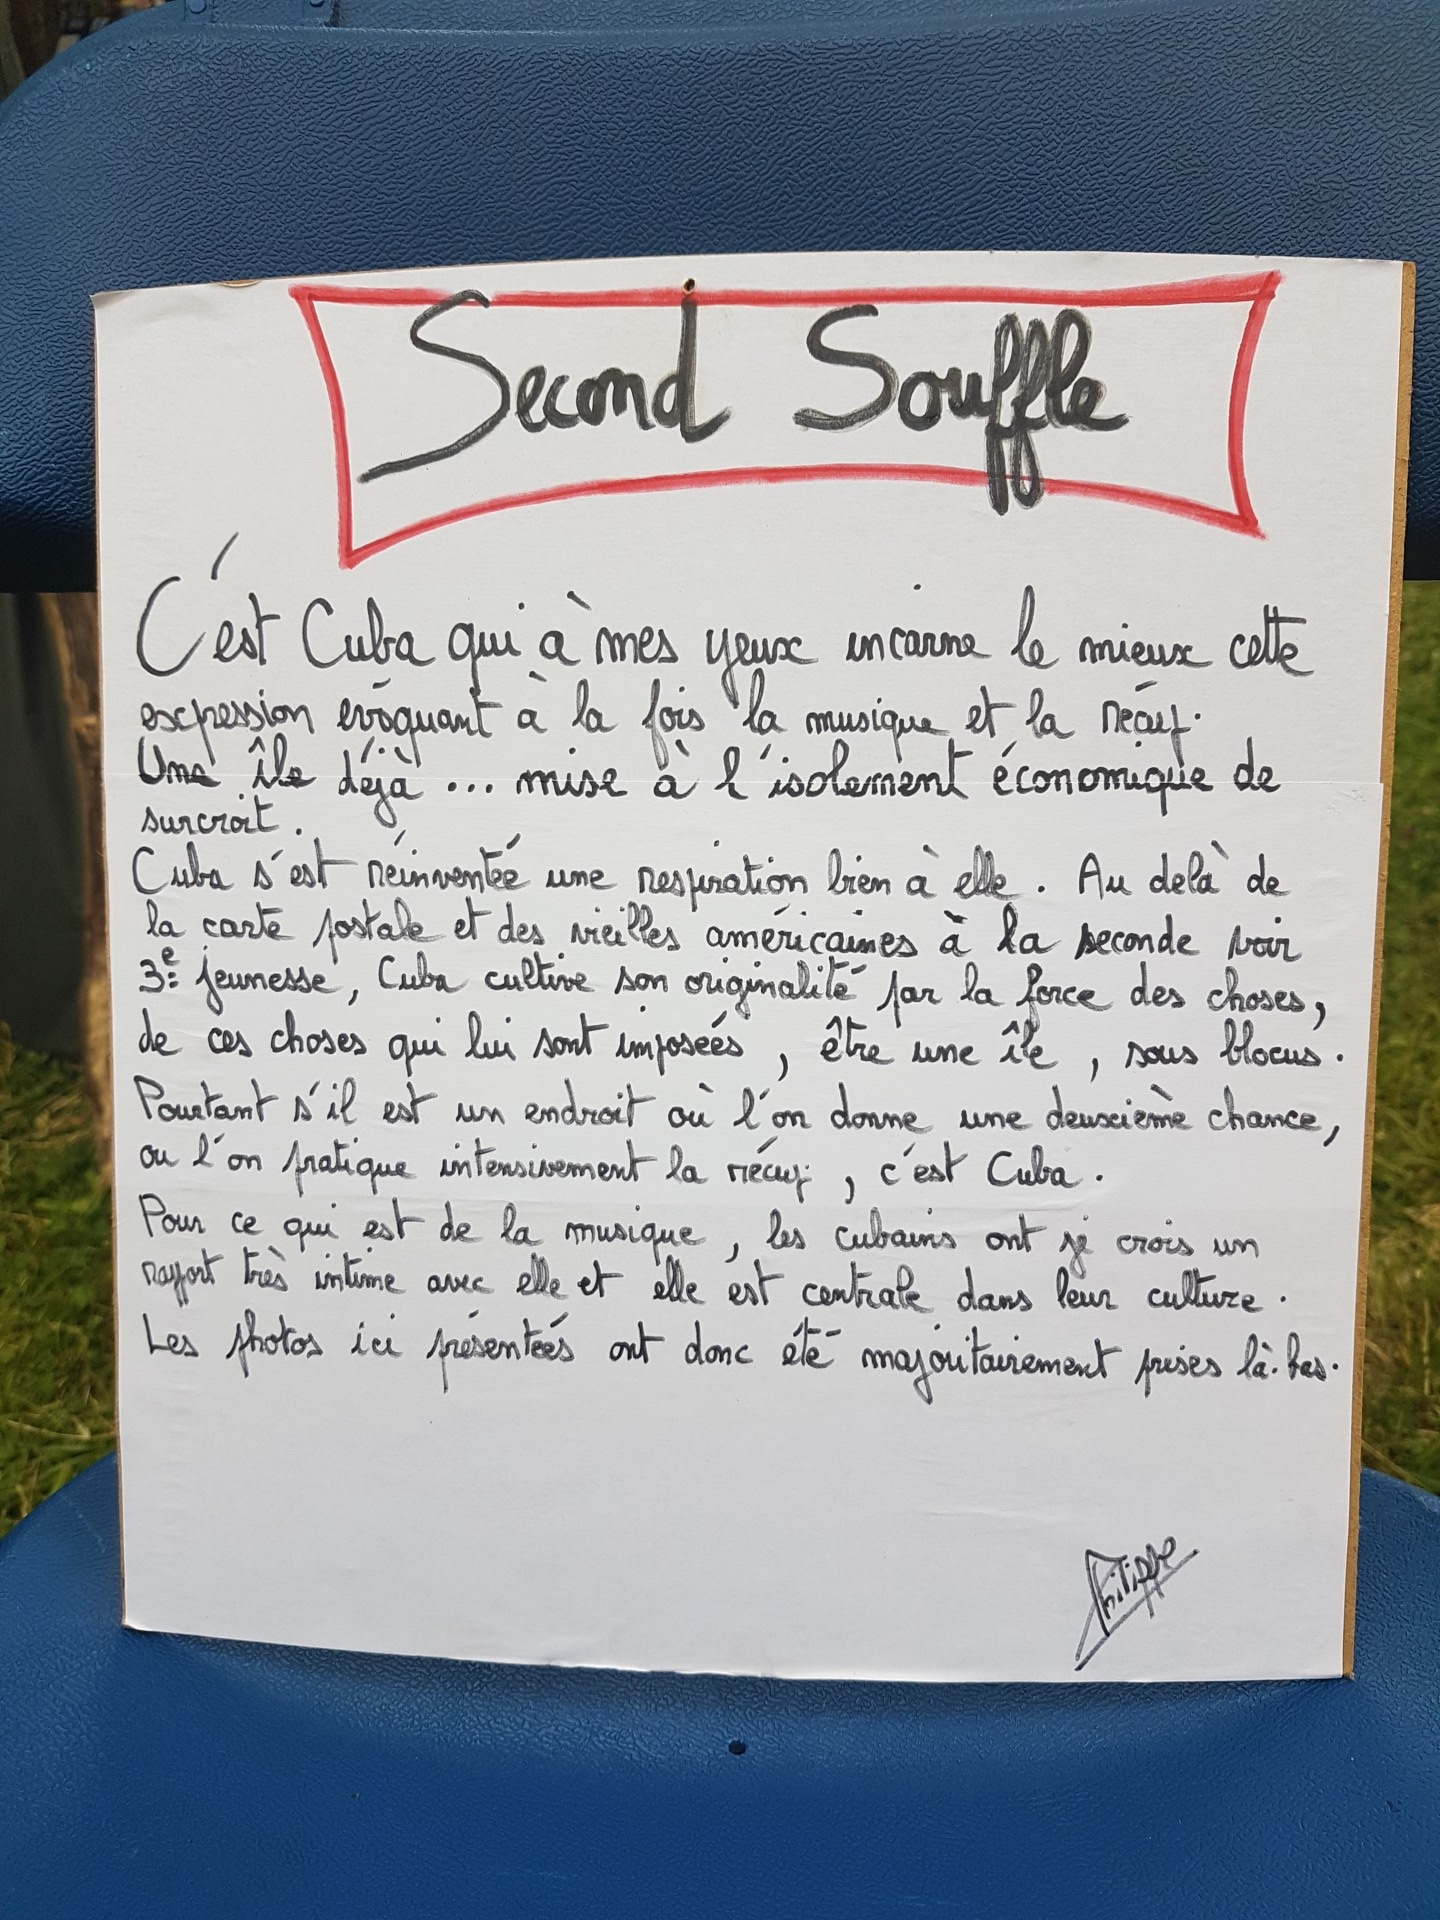 Second Souffle
C'est Cuba qui à mes yeux incarne le mieux cette
expression évoquant à la fois la musique et la récup.
Une île déjà... mise à l'isolement économique de
surcroit.
Cuba s'est réinventée une respiration bien à elle. Au delà de
la carte postale et des vieilles américaines à la seconde voir
3e jeunesse, Cuba cultive son originalité par la force des choses,
de ces choses qui lui sont imposées, être une île, sous blocus.
Pourtant s'il est un endroit où l'on donne une deuxième chance,
ou l'on pratique intensivement la récup, c'est Cuba.
Pour ce qui est de la musique, les cubains ont je crois un
rapport très intime avec elle et elle est centrale dans leur culture.
Les photos ici présentées ont donc été majoritairement prises là-bas.
Philippe